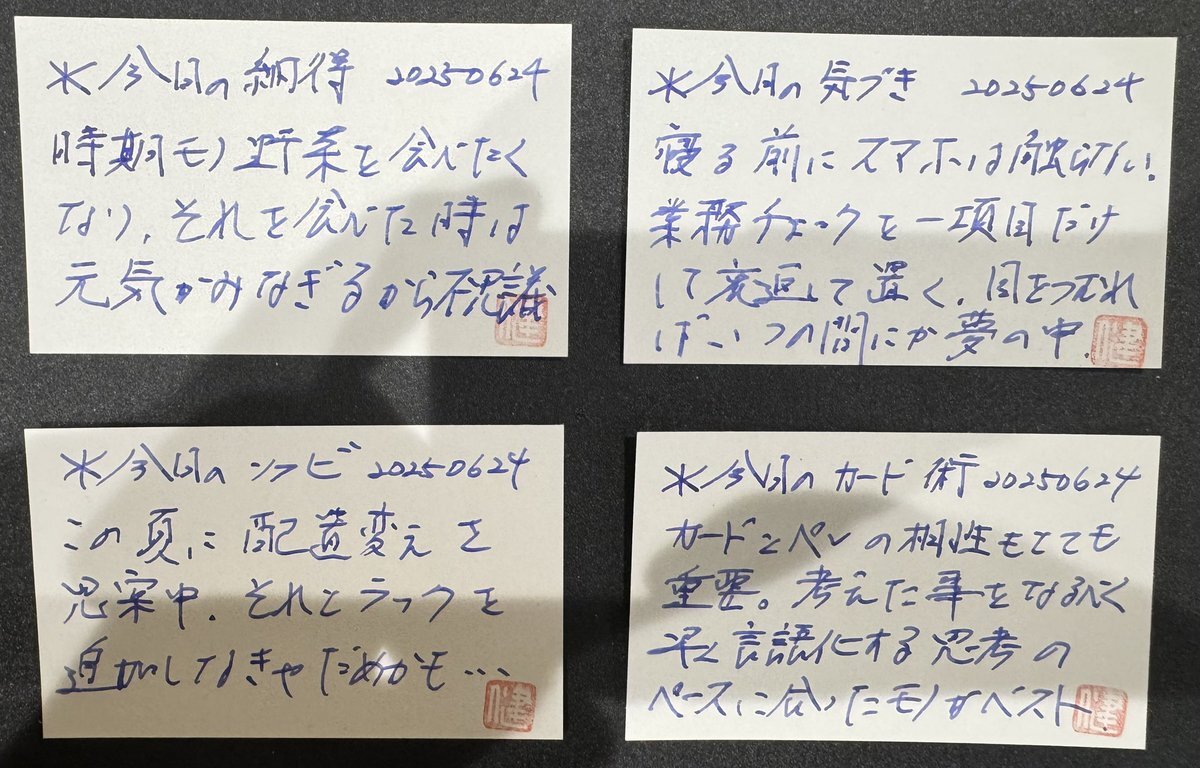 *今日の納得 20250624
時期モノ野菜を食べたく
なり、それを食べた時は
元気がみなぎるから不思議
健
*今日の気づき 20250624
寝る前にスマホは触らない。
業務チェックを一項目だけ
して充電して置く、目をつむれ
ばいつの間にか夢の中
健
*今日のソフビ 20250624
この頃に配置変えを
思案中。それとラックを
追加しなきゃだめかも…
健
*今日のカード術 20250624
カードとペンの相性もとても
重要。考えた事をなるべく
早く言語化する思考の
ペースに合ったモノがベスト
健